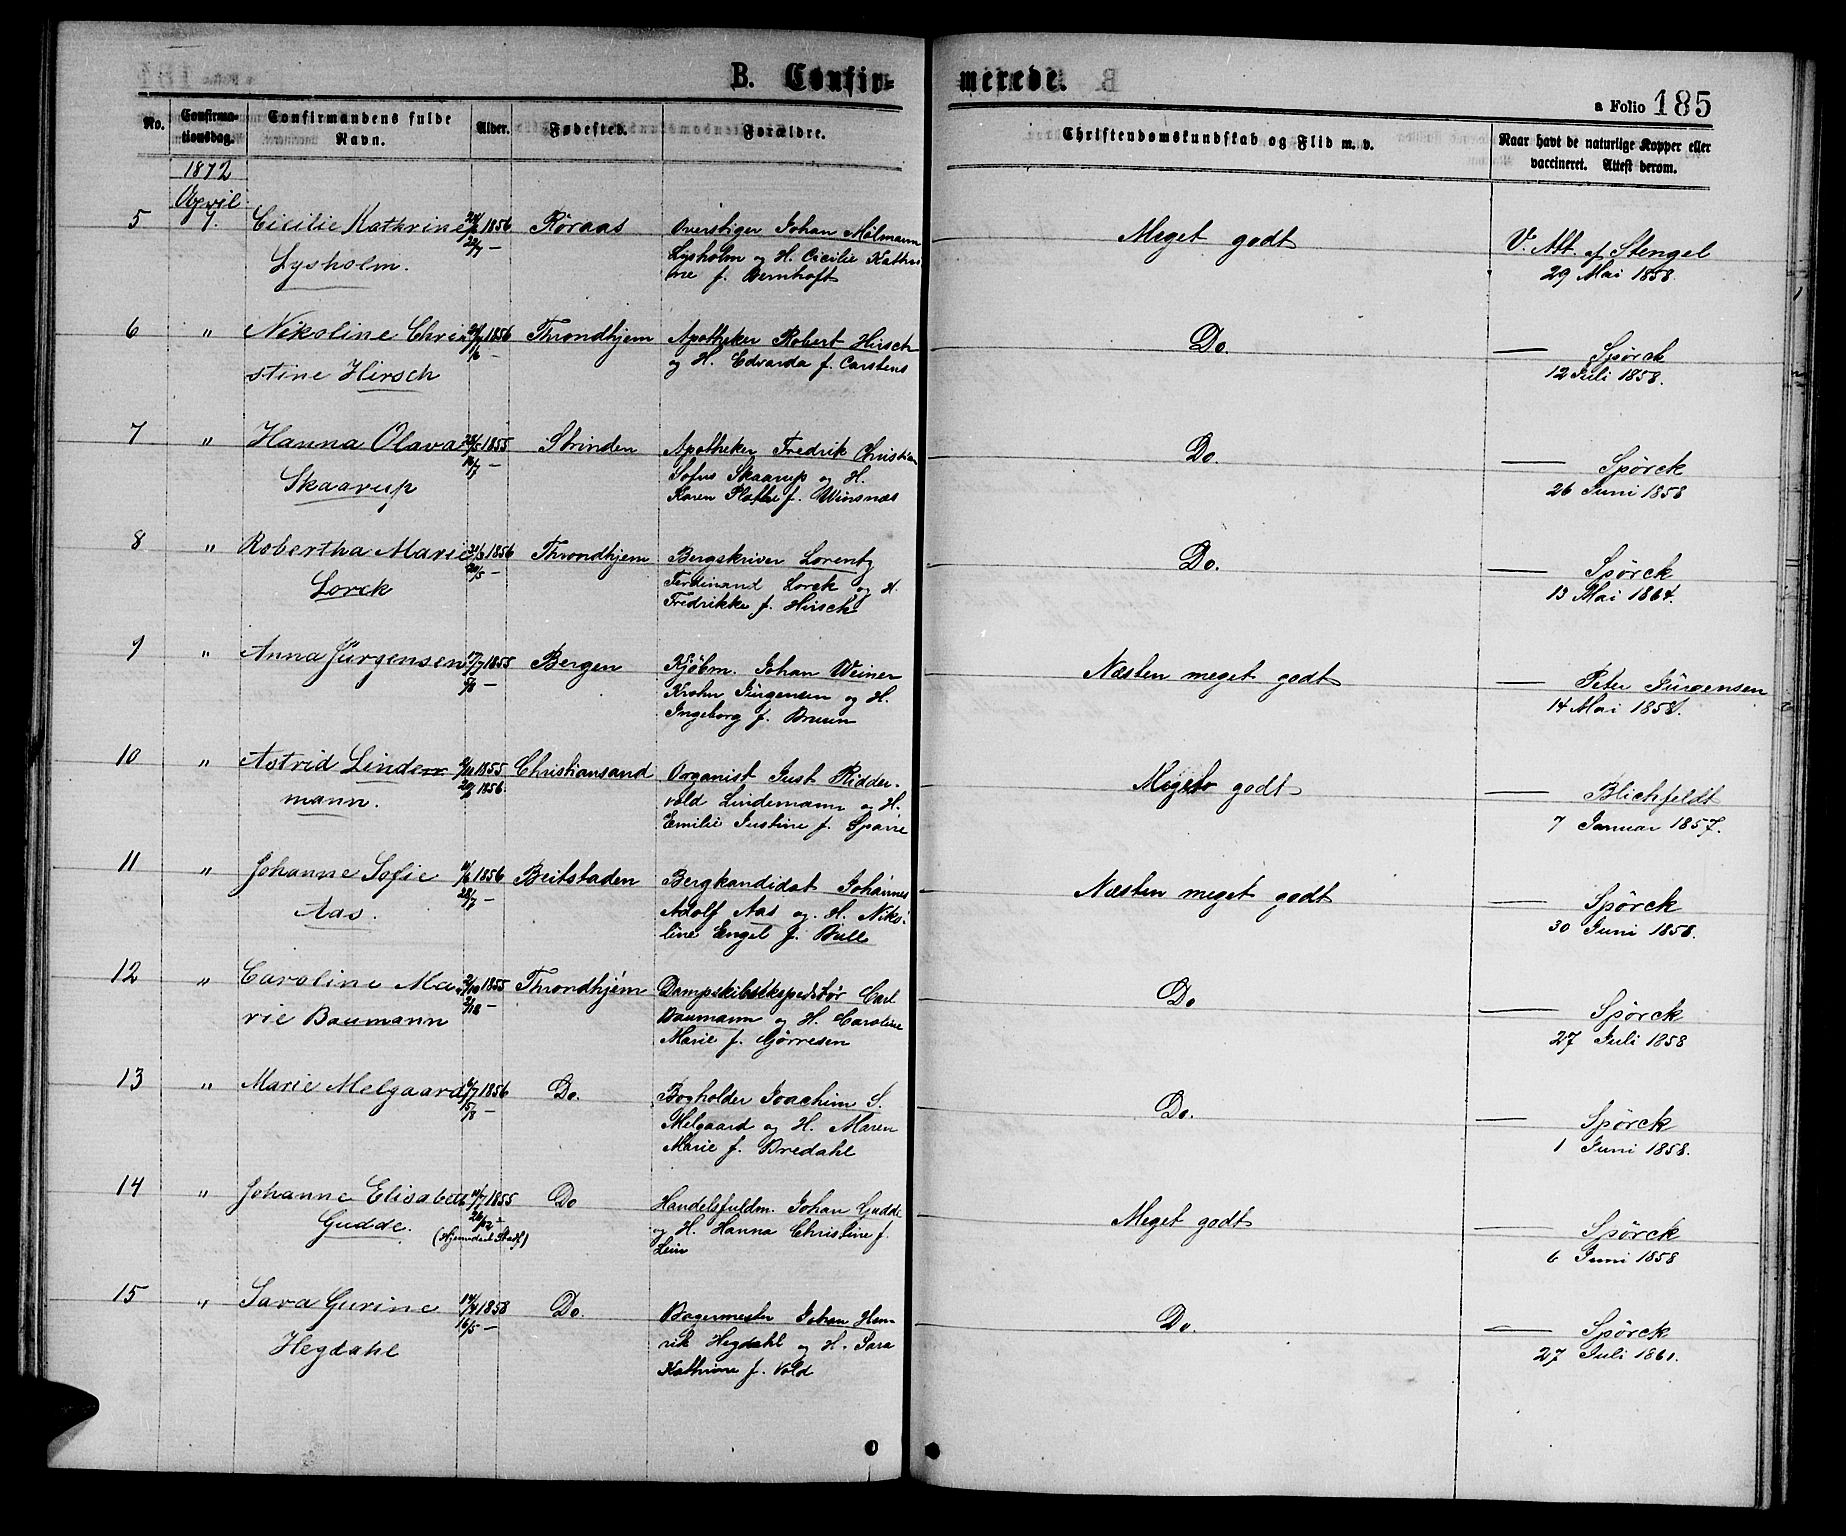 B. Confir- merede.
a Folio 185
No. Confirma-tionsdag. Confirmandens fulde Navn. Alder. Fødested. Forældre. Christendomskundskab og Flid m. v. Naar havt de naturlige Kopper eller vaccineret. Attest derom.
1872
April
5 7. Cicilie Kathrine 1856 Røraas Overstiger Johan Mølmann Meget godt V. Att. af Stengel
Lysholm. 22/7 — Lysholm og H. Cicilie Kathri- 29 Mai 1858.
ne f. Bernhoft
6 " Nikoline Chri- 1856 Throndhjem Apotheker Robert Hirsch Do. — Spørck
stine Hirsch — og H. Edvarda f. Carstens 12 Juli 1858.
7 " Hanna Olava 1855 Strinden Apotheker Fredrik Christian Do. — Spørck
Skaarup — Sofus Skaarup og H. 26 Juni 1858
Karen Plathe f. Winsnæs
8 " Robertha Marie 1856 Throndhjem Bergskriver Lorentz Do. — Spørck
Lorck 20/5 — Ferdinand Lorck og H. 13 Mai 1864.
Fredrikke f. Hirsch
9 " Anna Jürgensen 17/7 1855 Bergen Kjøbm. Johan Weiner Næsten meget godt — Peter Jürgensen
5/8 — Krohn Jürgensen og H. 14 Mai 1858.
Ingeborg f. Bruun
10 " Astrid Linde- 1855 Christiansand Organist Just Ridder- Meget godt — Blichfeldt
mann. 1856. vold Lindemann og H. 7 Januar 1857.
Emilie Justine f. Sparre
11 " Johanne Sofie 1856 Beitstaden Bergkandidat Johannes Næsten meget godt — Spørck
Aas. 28/7 — Adolf Aas og H. Niko- 30 Juni 1858.
line Engel f. Bull
12 " Caroline Ma- 2/10 1855 Throndhjem Dampskibsekspeditør Carl Do — Spørck
rie Baumann 2/12 — Baumann og H. Caroline 27 Juli 1858
Marie f. Gjørresen
13 " Marie Melgaard 1856 Do. Bogholder Joachim S. Do. — Spørck
15/8 — Melgaard og H. Maren 1 Juni 1858.
Marie f. Bredahl
14 " Johanne Elisabeth 1855 Do Handelsfuldm. Johan Gudde Meget godt — Spørck
Gudde. 26/12 — og H. Hanna Christine f. 6 Juni 1858
(Hjemdøbt Stadf.) Lein
15 " Sara Gurine 1858 Do. Bagermester Johan Hen- Do. — Spørck
Hegdahl 16/5 — rik Hegdahl og H. Sara 27 Juli 1861.
Kathrine f. Vold